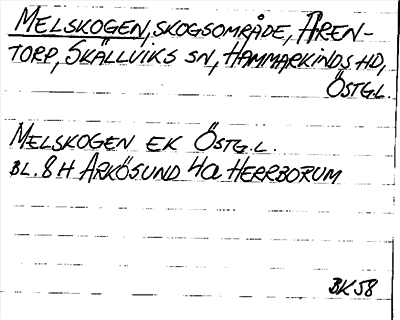 MELSKOGEN, SKOGSOMRÅDE, ÅREN-
TORP, SKÄLLVIKS SN, HAMMARKINDS HD,
ÖSTGL.
MELSKOGEN EK ÖSTG.L.
BL. 8H ARKÖSUND 4a HERRBORUM
BK58